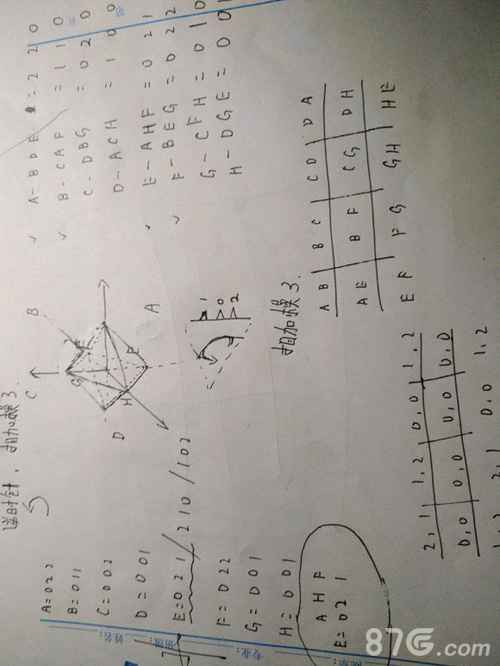 姓名:
专业:
逆时针, 相加模3.
A=022
B=011
C=002
D=001
E=021/210/102
F=022
G=001
H=001
AHF
E=021
C
B
D
A
G
F
H
E
1
0
2
A-BDE =220
B-CAF =110
C-DBG =020
D-ACH =100
E-AHF =021
F-BEG =022
G-CFH =010
H-DGE =001
相加模3.
AB BC CD DA
AE BF CG DH
EF FG GH HE
2,1 1,2 0,0 1,2
0,0 0,0 0,0 0,0
2,1 0,0 1,2
87G.com